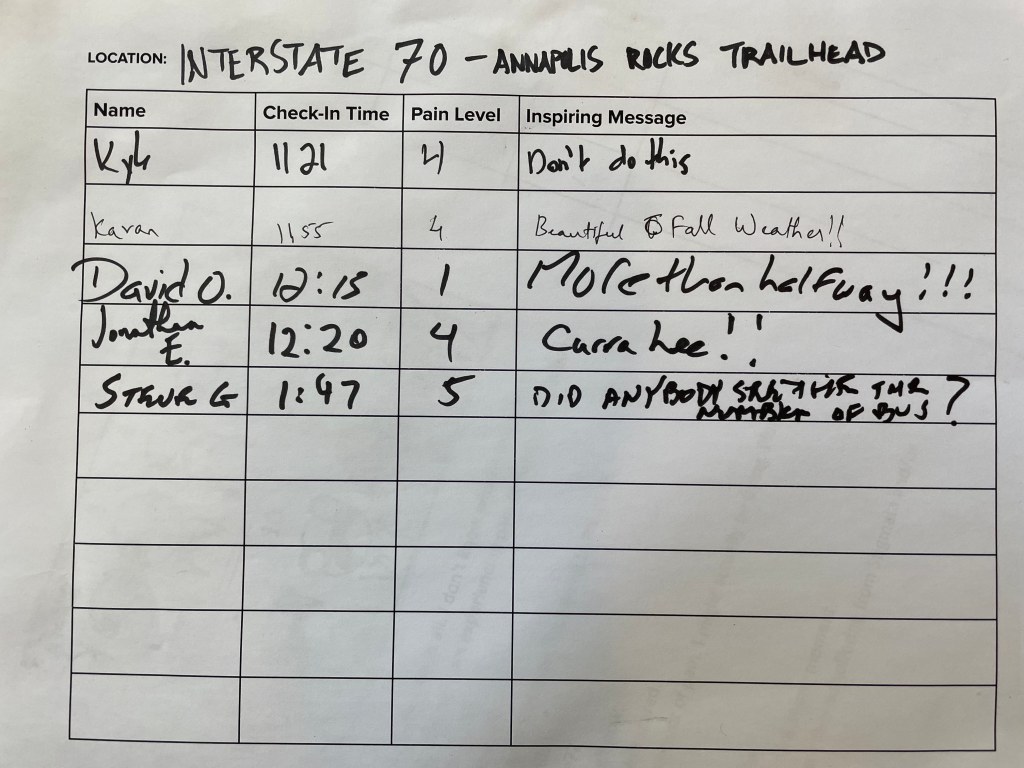 LOCATION: INTERSTATE 70 - ANNAPOLIS ROCKS TRAILHEAD
Name Check-In Time Pain Level Inspiring Message
Kyle 1121 4 Don't do this
Karan 1155 4 Beautiful Fall Weather!!
David O. 12:15 1 More than halfway!!!
Jonathan E. 12:20 4 Currahee!!
STEVE G 1:47 5 DID ANYBODY THE
NUMBER OF BUS?